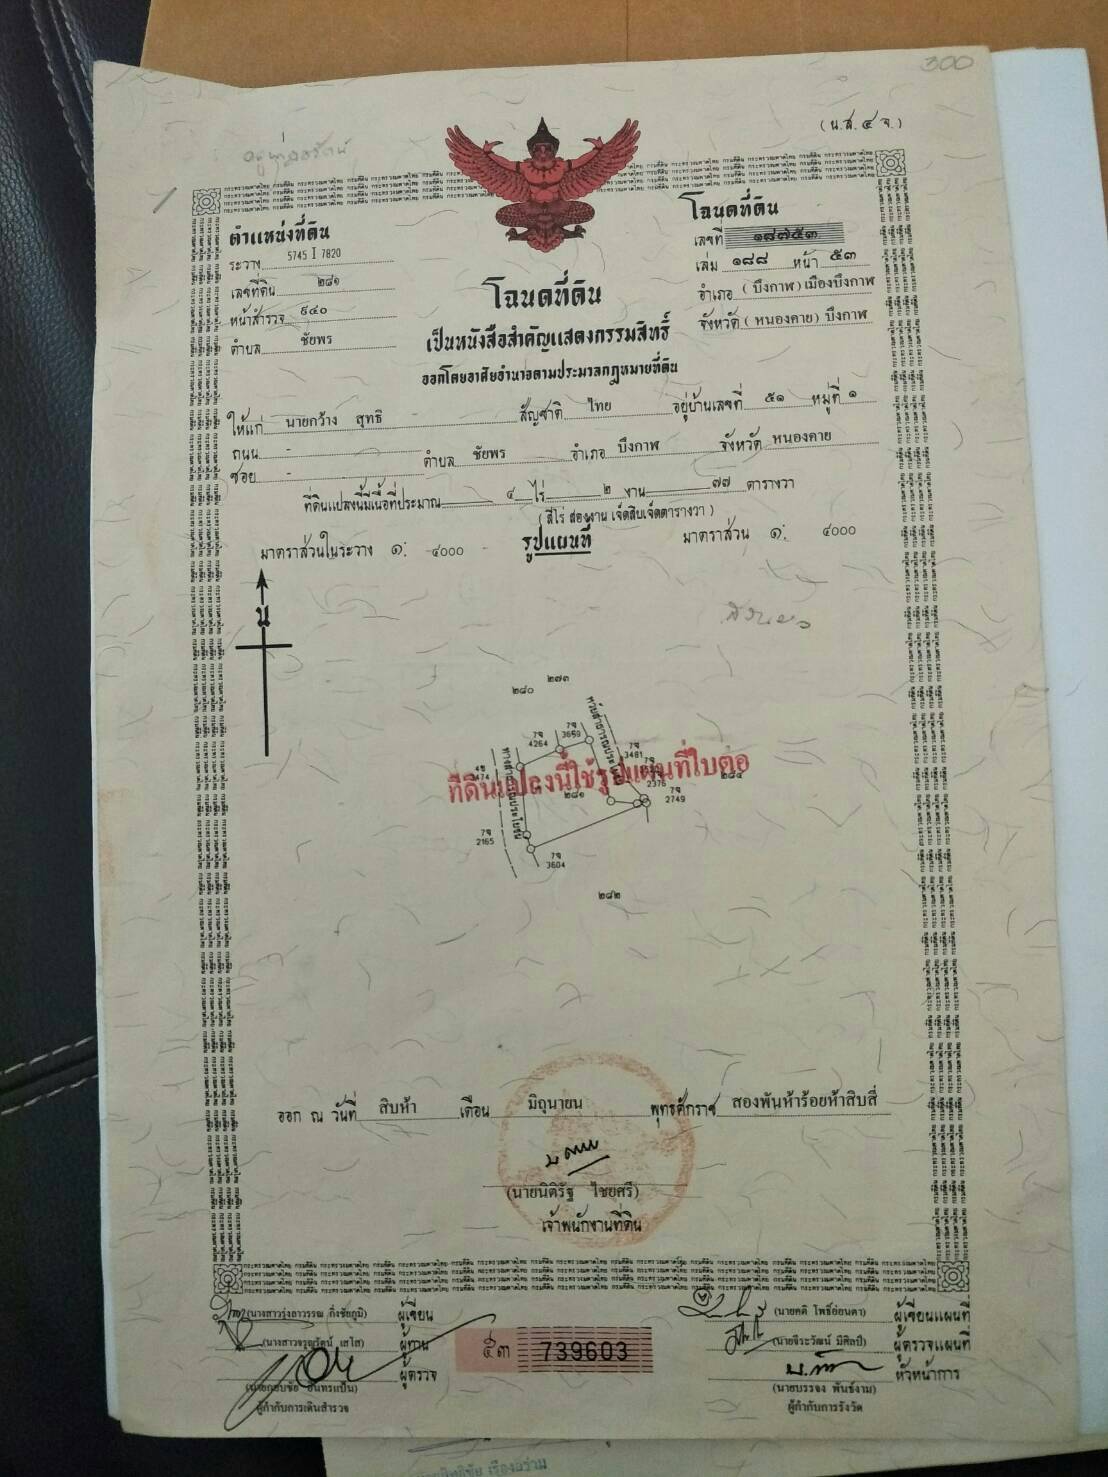 300
(น.ส.๔ จ.)
ตำแหน่งที่ดิน
ระวาง 5745 I 7820
เลขที่ดิน ๒๘๑
หน้าสำรวจ ๙๔๐
ตำบล ชัยพร
โฉนดที่ดิน
เลขที่ ๑๘๗๕๓
เล่ม ๑๘๘ หน้า ๕๓
อำเภอ (บึงกาฬ) เมืองบึงกาฬ
จังหวัด (หนองคาย) บึงกาฬ
โฉนดที่ดิน
เป็นหนังสือสำคัญแสดงกรรมสิทธิ์
ออกโดยอาศัยอำนาจตามประมวลกฎหมายที่ดิน
ให้แก่ นายกว้าง สุทธิ สัญชาติ ไทย อยู่บ้านเลขที่ ๕๑ หมู่ที่ ๑
ถนน - ตำบล ชัยพร อำเภอ บึงกาฬ จังหวัด หนองคาย
ซอย -
ที่ดินแปลงนี้มีเนื้อที่ประมาณ ๔ ไร่ ๒ งาน ๗๗ ตารางวา
(สี่ไร่ สองงาน เจ็ดสิบเจ็ดตารางวา)
มาตราส่วนในระวาง ๑: ๔๐๐๐ รูปแผนที่ มาตราส่วน ๑: ๔๐๐๐
น
๒๘๐ ๒๗๓
7จ 4264
7จ 3659
7จ 3481
2376
7จ 2749
๒๘๔
๒๘๑
ที่ดินแปลงนี้ใช้รูปแผนที่ใบต่อ
7จ 2165
7จ 3604
๒๘๒
ออก ณ วันที่ สิบห้า เดือน มิถุนายน พุทธศักราช สองพันห้าร้อยห้าสิบสี่
(นายนิติรัฐ ไชยศรี)
เจ้าพนักงานที่ดิน
(นางสาวรุ่งอาวรรณ กิ่งชัยภูมิ) ผู้เขียน
(นางสาวจรูญรัตน์ เสโส) ผู้ทาน
ผู้ตรวจ
ผู้กำกับการเดินสำรวจ
๕๓ 739603
(นายคดี โพธิ์อ่อนตา) ผู้เขียนแผนที่
(นายจีระวัฒน์ มีศิลป์) ผู้ตรวจแผนที่
หัวหน้าการ
(นายบรรจง พันธ์งาม)
ผู้กำกับการรังวัด